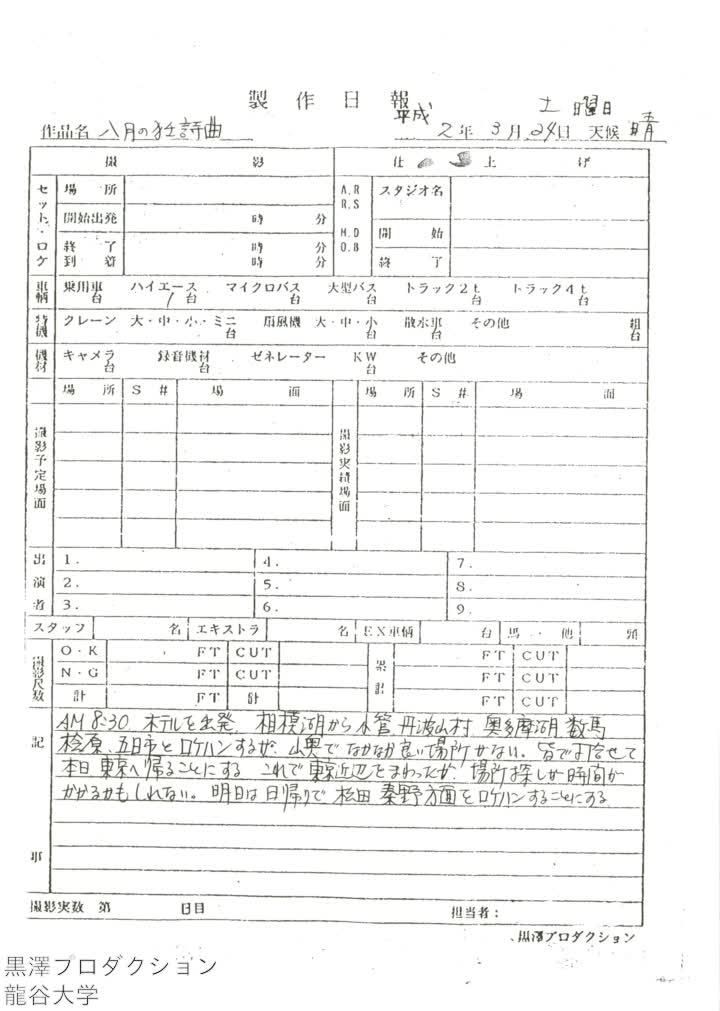 製作日報
作品名 八月の狂詩曲 平成2年3月24日 土曜日 天候 晴
撮影 仕上げ
セット・ロケ 場所 A.R R.S スタジオ名
開始出発 時 分 H.D O.B 開始
終了到着 時 分 時 分 終了
車輌 乗用車 台 ハイエース 1台 マイクロバス 台 大型バス 台 トラック2t 台 トラック4t 台
特機 クレーン 大・中・小・ミニ 台 扇風機 大・中・小 台 散水車 台 その他 組 台
機材 キャメラ 台 録音機材 台 ゼネレーター KW 台 その他
撮影予定場面 場所 S# 場面 撮影実績場面 場所 S# 場面
出演者 1. 4. 7.
2. 5. 8.
3. 6. 9.
スタッフ 名 エキストラ 名 EX車輌 台 馬・他 頭
撮影尺数 O・K FT CUT 累計 FT CUT
N・G FT CUT FT CUT
計 FT 計 FT CUT
記事
AM 8:30 ホテルを出発 相模湖から小菅 丹波山村 奥多摩湖 数馬
桧原、五日市とロケハンするが、山奥でなかなか良い場所がない。皆で打合せて
本日東京へ帰ることにする これで東京近辺をまわったが、場所探しが時間が
かかるかもしれない。明日は日帰りで松田 秦野方面をロケハンすることにする
撮影実数 第 日目 担当者:
黒澤プロダクション
黒澤プロダクション
龍谷大学